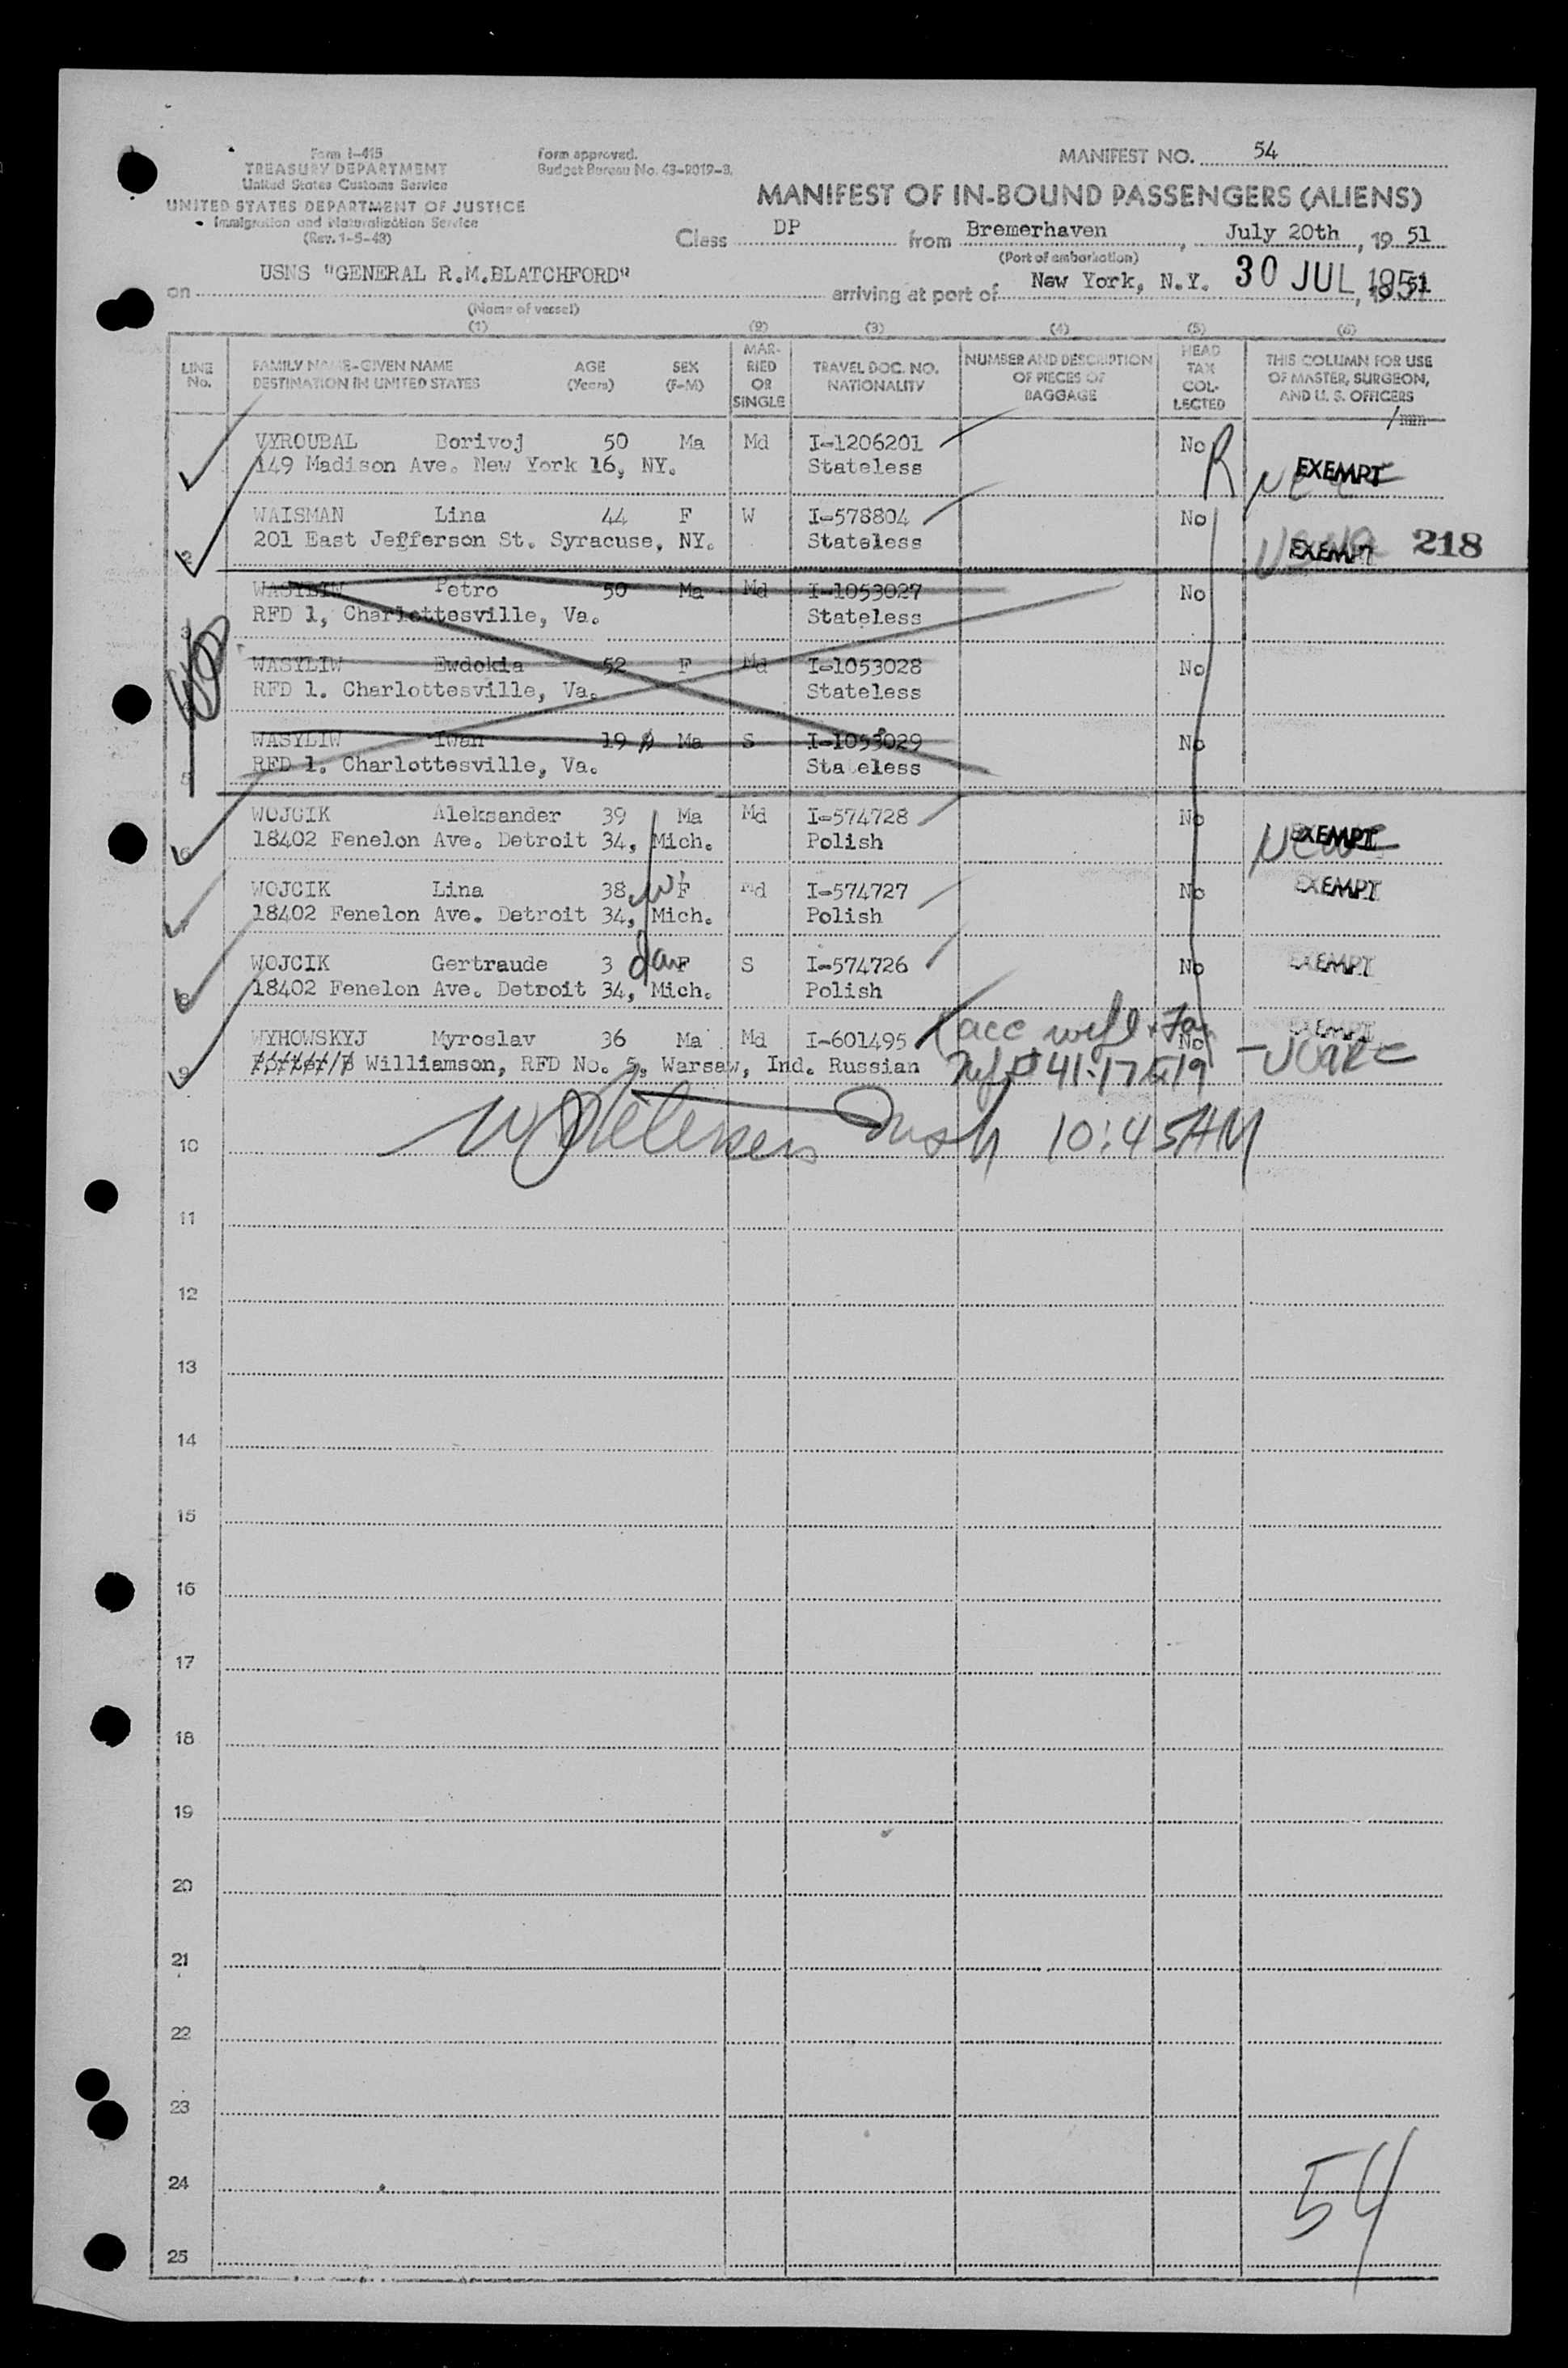 Form I-415
TREASURY DEPARTMENT
United States Customs Service
UNITED STATES DEPARTMENT OF JUSTICE
Immigration and Naturalization Service
(Rev. 1-5-43)
Form approved.
Budget Bureau No. 43-R019-3.
MANIFEST NO. 54
MANIFEST OF IN-BOUND PASSENGERS (ALIENS)
Class DP from Bremerhaven, July 20th, 19 51
(Port of embarkation)
on USNS "GENERAL R.M.BLATCHFORD" arriving at port of New York, N.Y. 30 JUL 1951, 19 51
(Name of vessel)
(1) (2) (3) (4) (5) (6)
LINE No. FAMILY NAME-GIVEN NAME DESTINATION IN UNITED STATES AGE (Years) SEX (F-M) MARRIED OR SINGLE TRAVEL DOC. NO. NATIONALITY NUMBER AND DESCRIPTION OF PIECES OF BAGGAGE HEAD TAX COLLECTED THIS COLUMN FOR USE OF MASTER, SURGEON, AND U. S. OFFICERS
/mm
VYROUBAL Borivoj 50 Ma Md I-1206201 No R EXEMPT
149 Madison Ave. New York 16, NY. Stateless
WAISMAN Lina 44 F W I-578804 No
2 201 East Jefferson St. Syracuse, NY. Stateless EXEMPT 218
WASYLIW Petro 50 Ma Md I-1053027 No
3 RFD 1, Charlottesville, Va. Stateless
WASYLIW Ewdokia 52 F Md I-1053028 No
RFD 1. Charlottesville, Va. Stateless
WASYLIW Iwan 19 Ma S I-1053029 No
5 RFD 1. Charlottesville, Va. Stateless
WOJCIK Aleksander 39 Ma Md I-574728 No EXEMPT
6 18402 Fenelon Ave. Detroit 34, Mich. Polish
WOJCIK Lina 38 F Md I-574727 No EXEMPT
18402 Fenelon Ave. Detroit 34, Mich. Polish
WOJCIK Gertraude 3 F S I-574726 No EXEMPT
8 18402 Fenelon Ave. Detroit 34, Mich. Polish
WYHOWSKYJ Myroslav 36 Ma Md I-601495 acc wife + No EXEMPT
9 Williamson, RFD No. 5, Warsaw, Ind. Russian
10 10:45AM
11
12
13
14
15
16
17
18
19
20
21
22
23
24
54
25